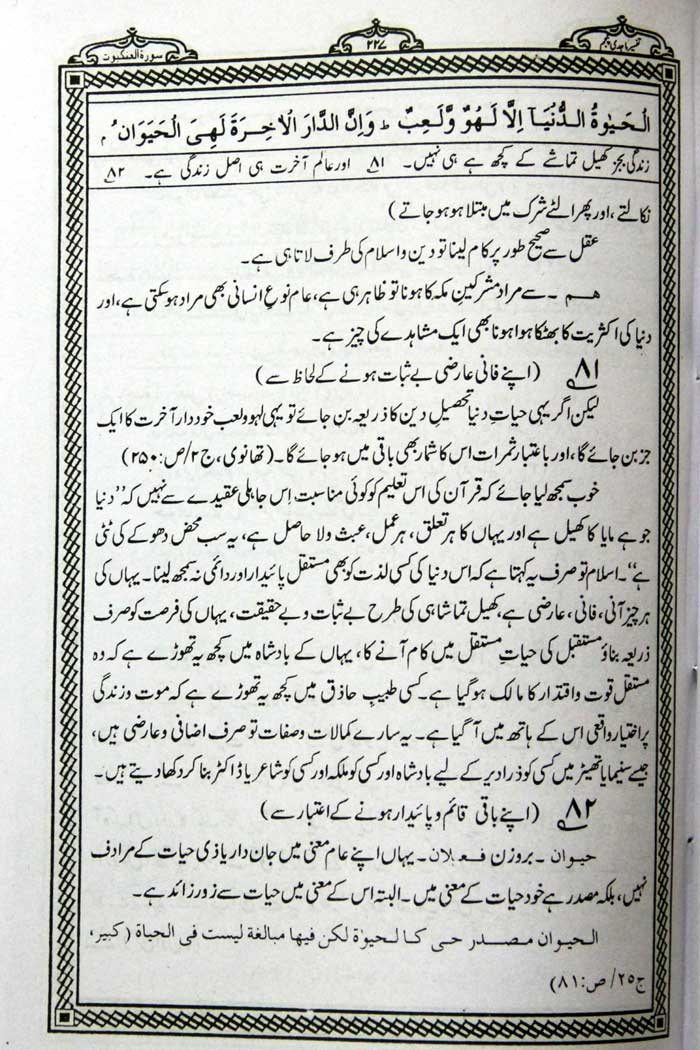 تفسیر ماجدی پنجم
۲۲۷
سورۃ العنکبوت
الْحَيٰوةُ الدُّنْيَآ اِلَّا لَهْوٌ وَّلَعِبٌ ط وَاِنَّ الدَّارَ الْاٰخِرَةَ لَهِيَ الْحَيَوَانُ م
زندگی بجز کھیل تماشے کے کچھ ہے ہی نہیں۔ ۸۱ اور عالم آخرت ہی اصل زندگی ہے۔ ۸۲
نکالتے، اور پھر الٹے شرک میں مبتلا ہو ہو جاتے)
عقل سے صحیح طور پر کام لینا تو دین و اسلام کی طرف لاتا ہی ہے۔
ھم ۔ سے مراد مشرکینِ مکہ کا ہونا تو ظاہر ہی ہے، عام نوعِ انسانی بھی مراد ہو سکتی ہے، اور
دنیا کی اکثریت کا بھٹکا ہوا ہونا بھی ایک مشاہدے کی چیز ہے۔
۸۱ (اپنے فانی عارضی بے ثبات ہونے کے لحاظ سے)
لیکن اگر یہی حیاتِ دنیا تحصیلِ دین کا ذریعہ بن جائے تو یہی لہو ولعب خود دار آخرت کا ایک
جز بن جائے گا، اور باعتبار ثمرات اس کا شمار بھی باقی میں ہو جائے گا۔ (تھانوی، ج ۲/ص: ۲۵۰)
خوب سمجھ لیا جائے کہ قرآن کی اس تعلیم کو کوئی مناسبت اِس جاہلی عقیدے سے نہیں کہ ”دنیا
جو ہے مایا کا کھیل ہے اور یہاں کا ہر تعلق، ہر عمل، عبث ولا حاصل ہے، یہ سب محض دھوکے کی ٹٹی
ہے“۔ اسلام تو صرف یہ کہتا ہے کہ اس دنیا کی کسی لذت کو بھی مستقل پائیدار اور دائمی نہ سمجھ لینا۔ یہاں کی
ہر چیز آنی، فانی، عارضی ہے، کھیل تماشا ہی کی طرح بے ثبات و بے حقیقت، یہاں کی فرصت کو صرف
ذریعہ بناؤ مستقبل کی حیاتِ مستقل میں کام آنے کا، یہاں کے بادشاہ میں کچھ یہ تھوڑے ہے کہ وہ
مستقل قوت و اقتدار کا مالک ہو گیا ہے۔ کسی طبیبِ حاذق میں کچھ یہ تھوڑے ہے کہ موت و زندگی
پر اختیار واقعی اس کے ہاتھ میں آگیا ہے۔ یہ سارے کمالات وصفات تو صرف اضافی و عارضی ہیں،
جیسے سنیما یا تھیٹر میں کسی کو ذرا دیر کے لیے بادشاہ اور کسی کو ملکہ اور کسی کو شاعر یا ڈاکٹر بنا کر دکھا دیتے ہیں۔
۸۲ (اپنے باقی قائم و پائیدار ہونے کے اعتبار سے)
حیوان ۔ بروزن فعلان ۔ یہاں اپنے عام معنی میں جان دار یا ذی حیات کے مرادف
نہیں، بلکہ مصدر ہے خود حیات کے معنی میں۔ البتہ اس کے معنی میں حیات سے زور زائد ہے۔
الحیوان مصدر حی کا لحیوٰۃ لکن فیھا مبالغۃ لیست فی الحیاۃ (کبیر،
ج ۲۵/ص: ۸۱)